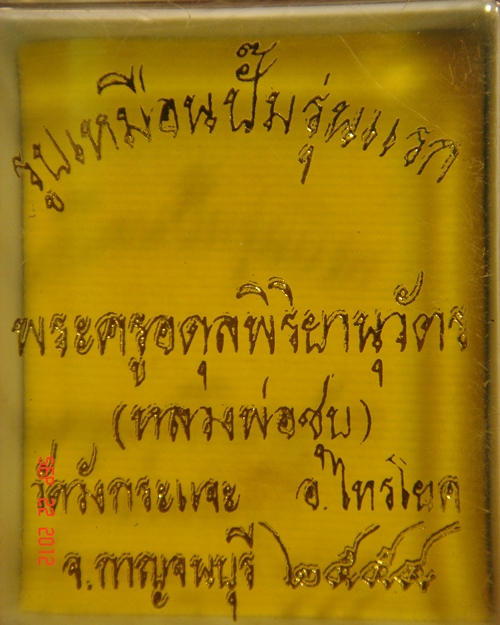 รูปเหมือนปั๊มรุ่นแรก
พระครูอดุลพิริยานุวัตร
(หลวงพ่อชุบ)
วัดวังกระแจะ อ.ไทรโยค
จ.กาญจนบุรี ๒๕๕๔
SEP 22 2012